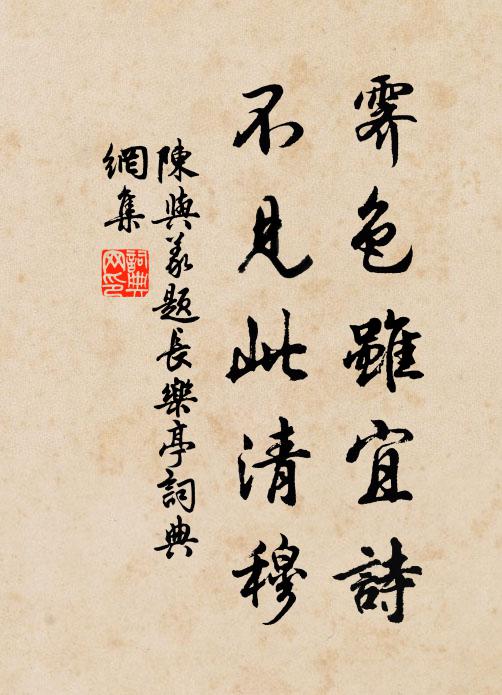 霽色雖宜詩
不見此清穆
陳與義題長樂亭詞典
網集
詞典
网印